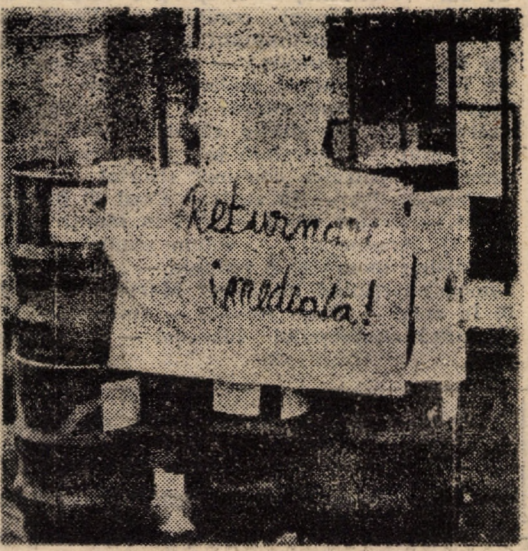 Returnare
imediata!